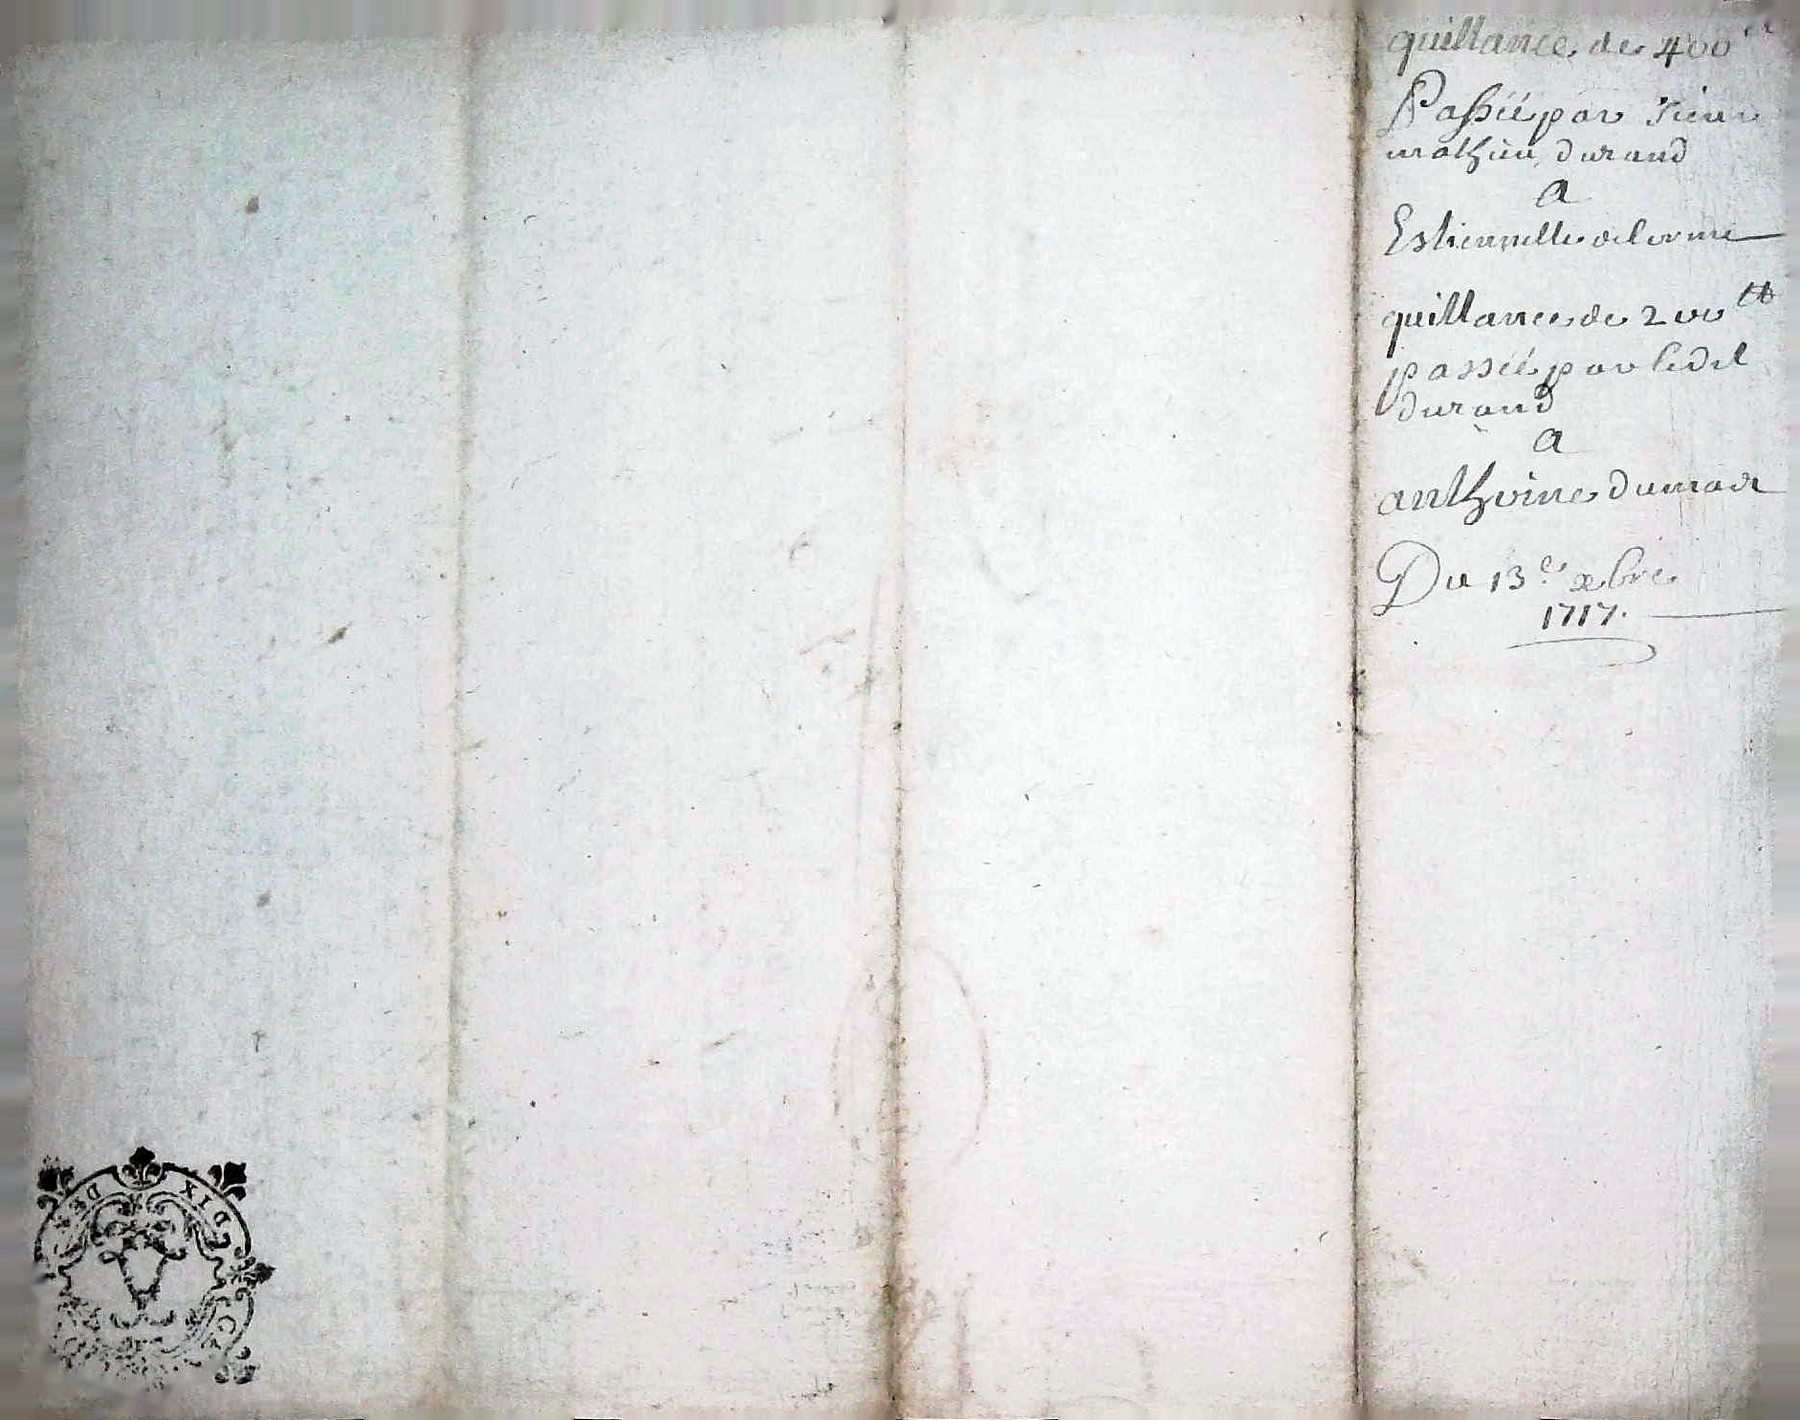 quittance de 400 lt
Passée par sieur
mathieu durand
a
Estiennette delorme
quittance de 200 lt
passée par ledit
durand
a
anthoine dumas
Du 13e. xbre
1717.
DIX DE